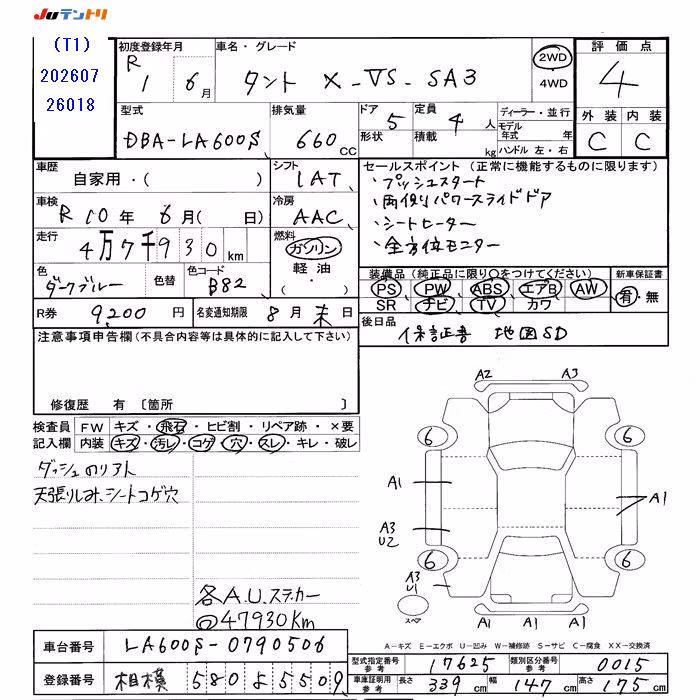 JUテントリ
(T1)
202607
26018
初度登録年月
R 1 年 6月
車名・グレード
タント X-VS-SA3
2WD
4WD
評価点
4
外装 内装
C C
型式
DBA-LA600S
排気量
660 CC
ドア 5
形状
定員 4 人
積載 kg
ディーラー・並行
モデル年式 年
ハンドル 左・右
車歴
自家用・( )
シフト
IAT
車検
R 10年 6月( 日)
冷房
AAC
走行
4万7千930km
燃料
ガソリン
軽油
・( )
色
ダークブルー
色替
色コード
B82
R券 9,200 円
名変通知期限 8月 末 日
セールスポイント (正常に機能するものに限ります)
・プッシュスタート
・両側パワースライドドア
・シートヒーター
・全方位モニター
装備品 (純正品に限り○をつけてください)
PS PW ABS エアB AW
SR ナビ TV カワ
新車保証書
有・無
後日品
保証書 地図SD
注意事項申告欄(不具合内容等は具体的に記入して下さい)
修復歴 有 〔箇所 〕
検査員記入欄
FW キズ・飛石・ヒビ割・リペア跡・×要
内装 キズ・汚レ・コゲ・穴・スレ・キレ・破レ
ダッシュのリアト
天張りしみ、シートコゲ穴
各A.U.ステッカー
@47930Km
A2 A3
6 6
A1 A1
A3
U2
6 6
A3
U1
スペア
A1 A1 A1
A－キズ E－エクボ U－凹み W－補修跡 S－サビ C－腐食 XX－交換済
車台番号 LA600S-0790506
登録番号 相模 580 よ 5509
型式指定番号 参考 17625
類別区分番号 参考 0015
車庫証明用 参考 長さ 339cm 幅 147cm 高さ 175cm